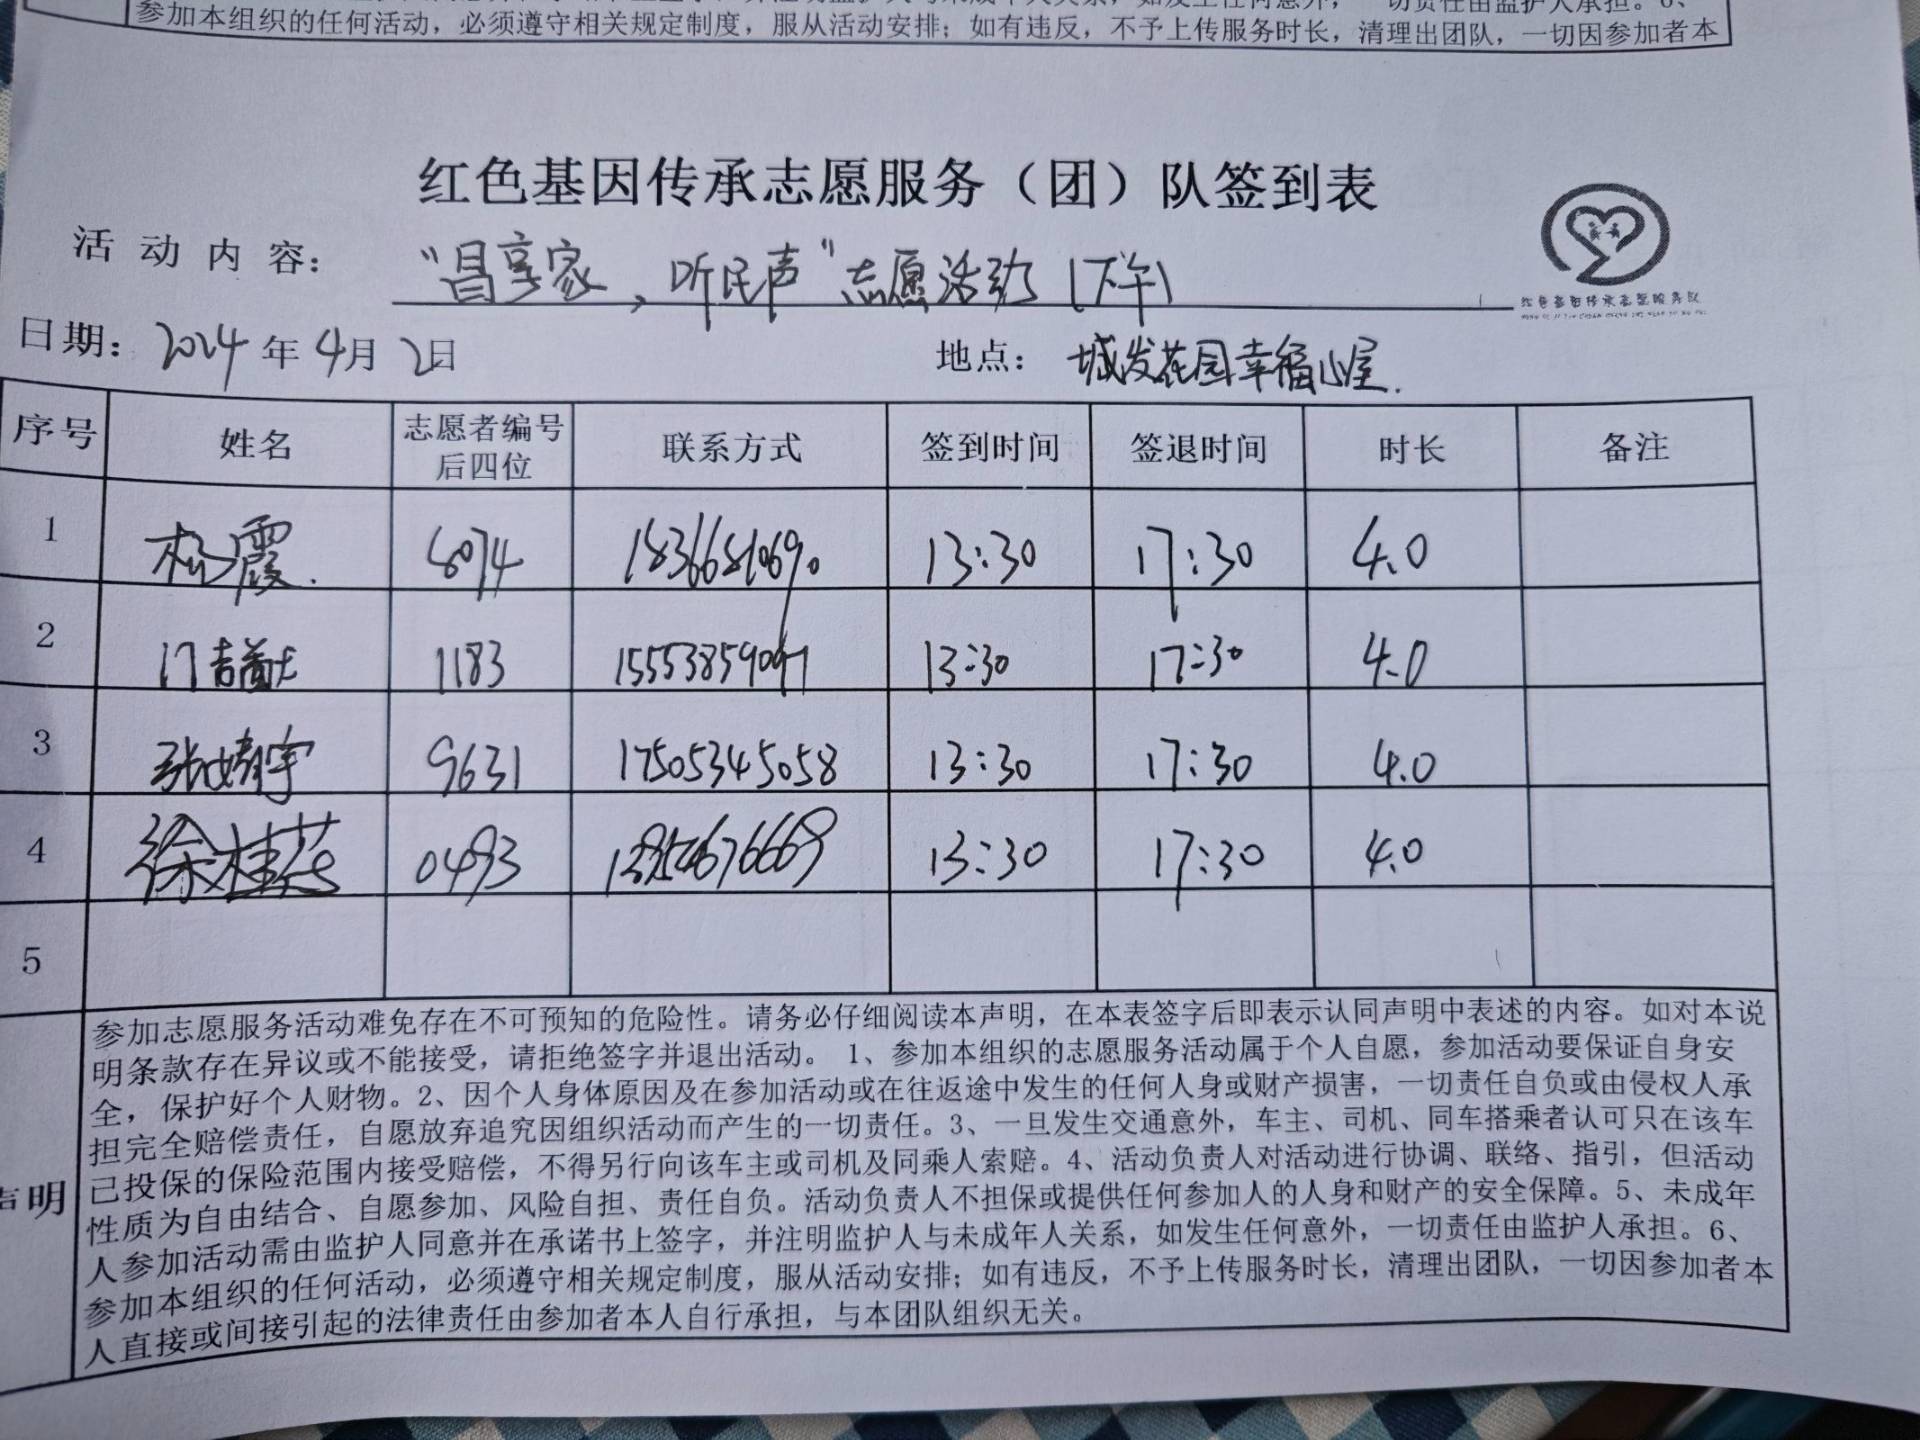 参加本组织的任何活动，必须遵守相关规定制度，服从活动安排；如有违反，不予上传服务时长，清理出团队，一切因参加者本
红色基因传承志愿服务（团）队签到表
活动内容： “昌享家，听民声”志愿活动（下午）
红色基因传承志愿服务队
日期：2024年4月2日 地点：城发花园幸福小屋.
序号 姓名 志愿者编号后四位 联系方式 签到时间 签退时间 时长 备注
1 杨霞. 6074 18366861069 13:30 17:30 4.0
2 门吉 1183 15553859097 13:30 17:30 4.0
3 张婧宇 9631 17505345058 13:30 17:30 4.0
4 徐桂燕 0493 13:30 17:30 4.0
5
声明
参加志愿服务活动难免存在不可预知的危险性。请务必仔细阅读本声明，在本表签字后即表示认同声明中表述的内容。如对本说
明条款存在异议或不能接受，请拒绝签字并退出活动。 1、参加本组织的志愿服务活动属于个人自愿，参加活动要保证自身安
全，保护好个人财物。2、因个人身体原因及在参加活动或在往返途中发生的任何人身或财产损害，一切责任自负或由侵权人承
担完全赔偿责任，自愿放弃追究因组织活动而产生的一切责任。3、一旦发生交通意外，车主、司机、同车搭乘者认可只在该车
已投保的保险范围内接受赔偿，不得另行向该车主或司机及同乘人索赔。4、活动负责人对活动进行协调、联络、指引，但活动
性质为自由结合、自愿参加、风险自担、责任自负。活动负责人不担保或提供任何参加人的人身和财产的安全保障。5、未成年
人参加活动需由监护人同意并在承诺书上签字，并注明监护人与未成年人关系，如发生任何意外，一切责任由监护人承担。6、
参加本组织的任何活动，必须遵守相关规定制度，服从活动安排；如有违反，不予上传服务时长，清理出团队，一切因参加者本
人直接或间接引起的法律责任由参加者本人自行承担，与本团队组织无关。